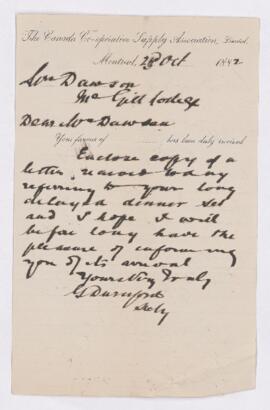 The Canada Co-operative Supply Association, Limited.
Montreal, 28 Oct 1882
Wm Dawson
McGill College
Dear Mr Dawson
Your favour of has been duly received
Enclose copy of a
letter received today
referring to your long
delayed dinner set
and I hope I will
before long have the
pleasure of informing
you of its arrival
Yours Very Truly
G Durnford
Secty